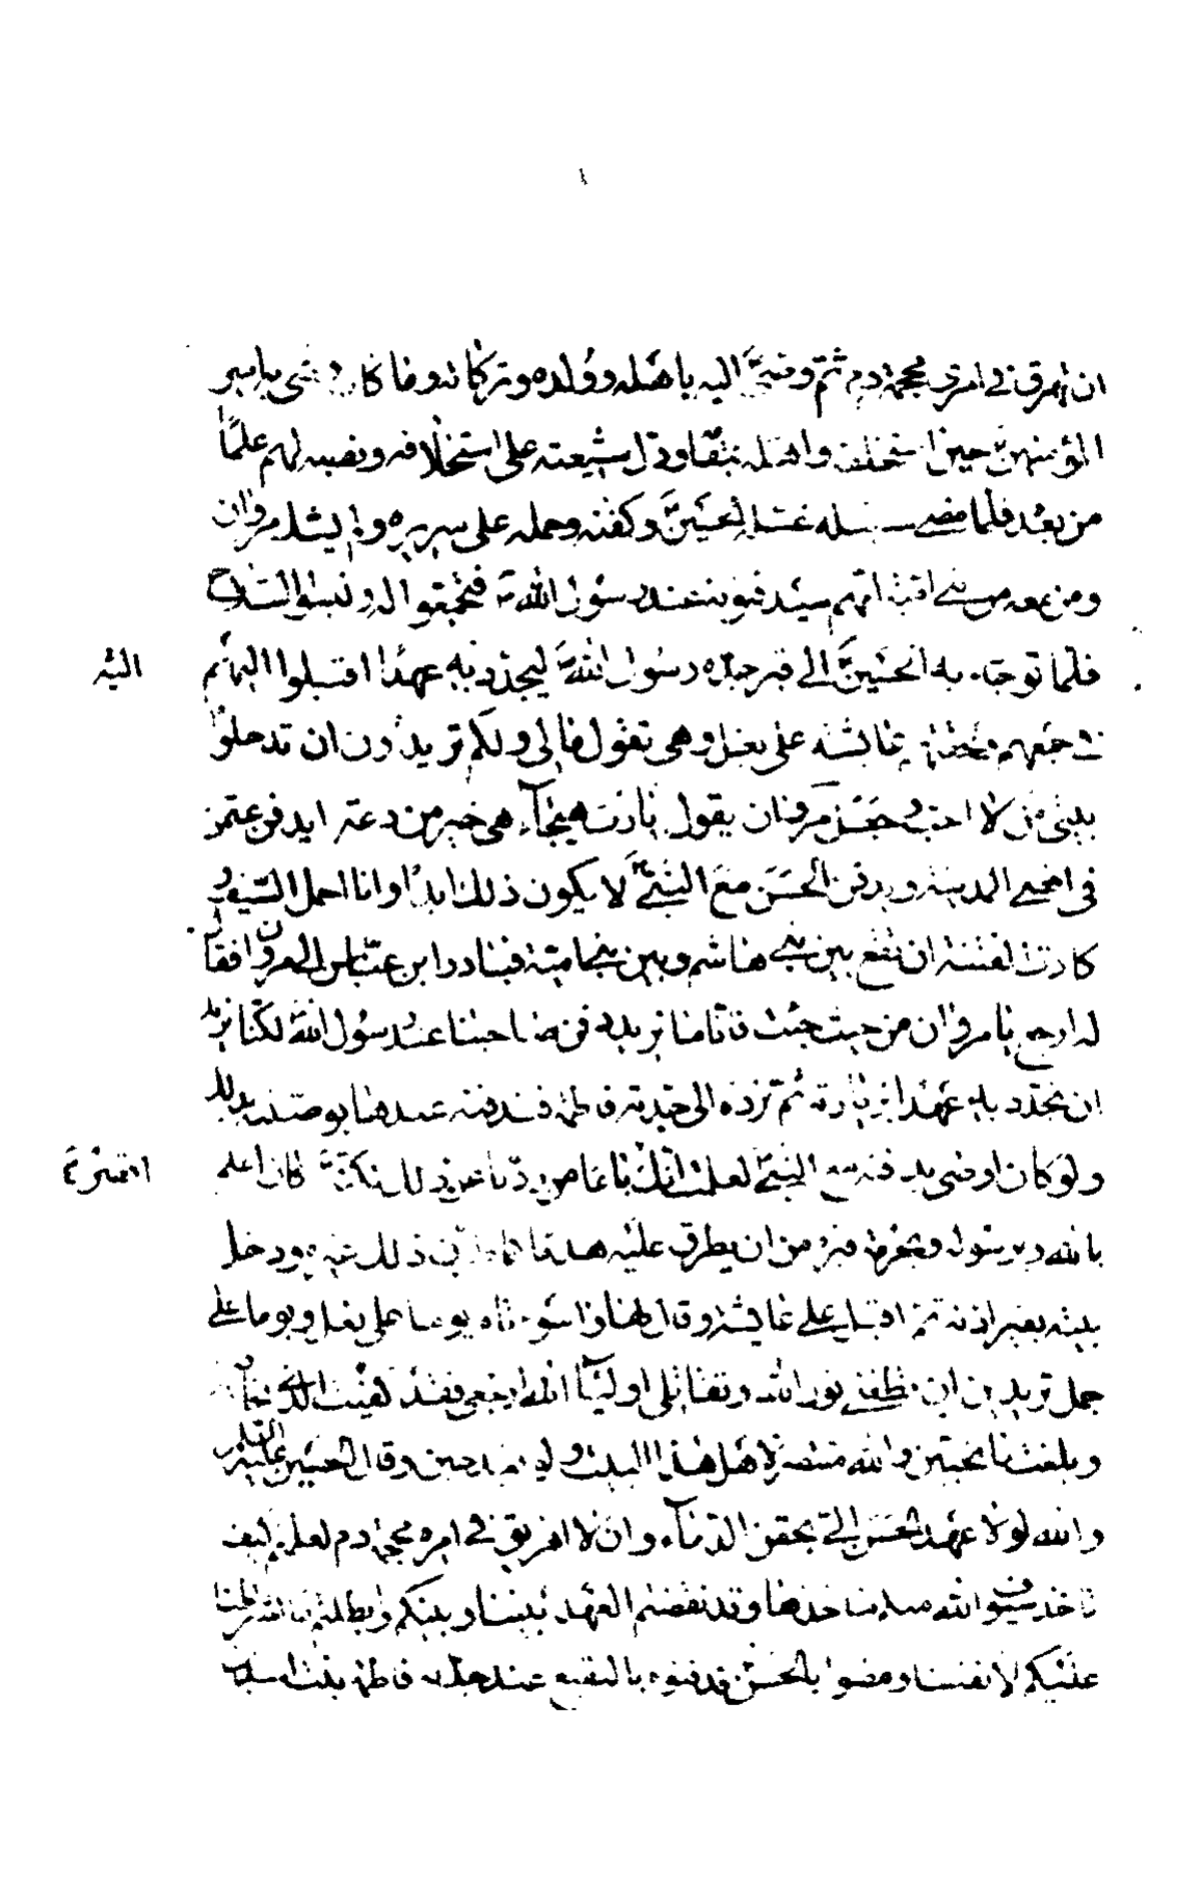 ان تهرق في امرى محجمة دم ثم وصى اليه باهله وولده وتركاته وما كان وصى به امير
المؤمنين حين استخلفه واهله بمقامه ودل شيعته على استخلافه ونصبه لهم علما
من بعده فلما مضى لسبيله غسله الحسين وكفنه وحمله على سريره ولم يشك مروان
ومن معه من بنى امية انهم سيدفنونه عند رسول الله فتجمعوا له ولبسوا السلاح
فلما توجه به الحسين الى قبر جده رسول الله ليجدد به عهدا اقبلوا اليهم
اليه
في جمعهم ولحقتهم عائشة على بغل وهى تقول مالى ولكم تريدون ان تدخلوا
بيتى من لا احب وجعل مروان يقول يا رب هيجآء هى خير من دعة ايدفن عثمن
في اقصى المدينة ويدفن الحسن مع النبى لا يكون ذلك ابدا وانا احمل السيف و
كادت الفتنة ان تقع بين بنى هاشم وبين بنى امية فبادر ابن عباس الى مروان فقال
له ارجع يا مروان من حيث جئت فانا ما نريد دفن صاحبنا عند رسول الله لكنا نريد
ان نجدد به عهدا بزيارته ثم نرده الى جدته فاطمة فندفنه عندها بوصيته بذلك
ولو كان اوصى بدفنه مع النبى لعلمت انك باعا من ردنا عن ذلك لكنه كان اعلم
بالله وبرسوله وبحرمة قبره من ان يطرق عليه هدما كما ذلك غيره ودخل
بيته بغير اذنه ثم اقبل على عائشة وقال لها واسوءتاه يوما على بغل ويوما على
جمل تريدين ان تطفى نور الله وتقاتلى اوليآء الله ارجعى فقد كفيت الذى
وبلغت ما تحبين والله منتصر لاهل هذا البيت ولو بعد حين وقال الحسين عليه السلام
والله لولا عهد الحسن الى بحقن الدمآء وان لا اهريق في امره محجمة دم لعلمتم كيف
تاخذ سيوف الله منكم ماخذها وقد نقضتم العهد بيننا وبينكم وابطلتم ما اشترطنا
عليكم لانفسنا ومضوا بالحسن فدفنوه بالبقيع عند جدته فاطمة بنت اسد